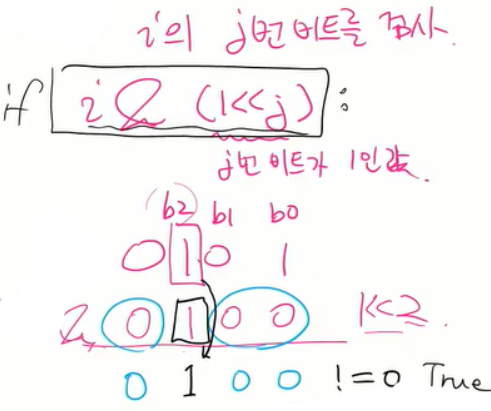 i의 j번 비트를 검사.
if i & (1<<j) :
j번 비트가 1인값.
b2 b1 b0
0 1 0 1
& 0 1 0 0 1<<2.
0 1 0 0 != 0 True